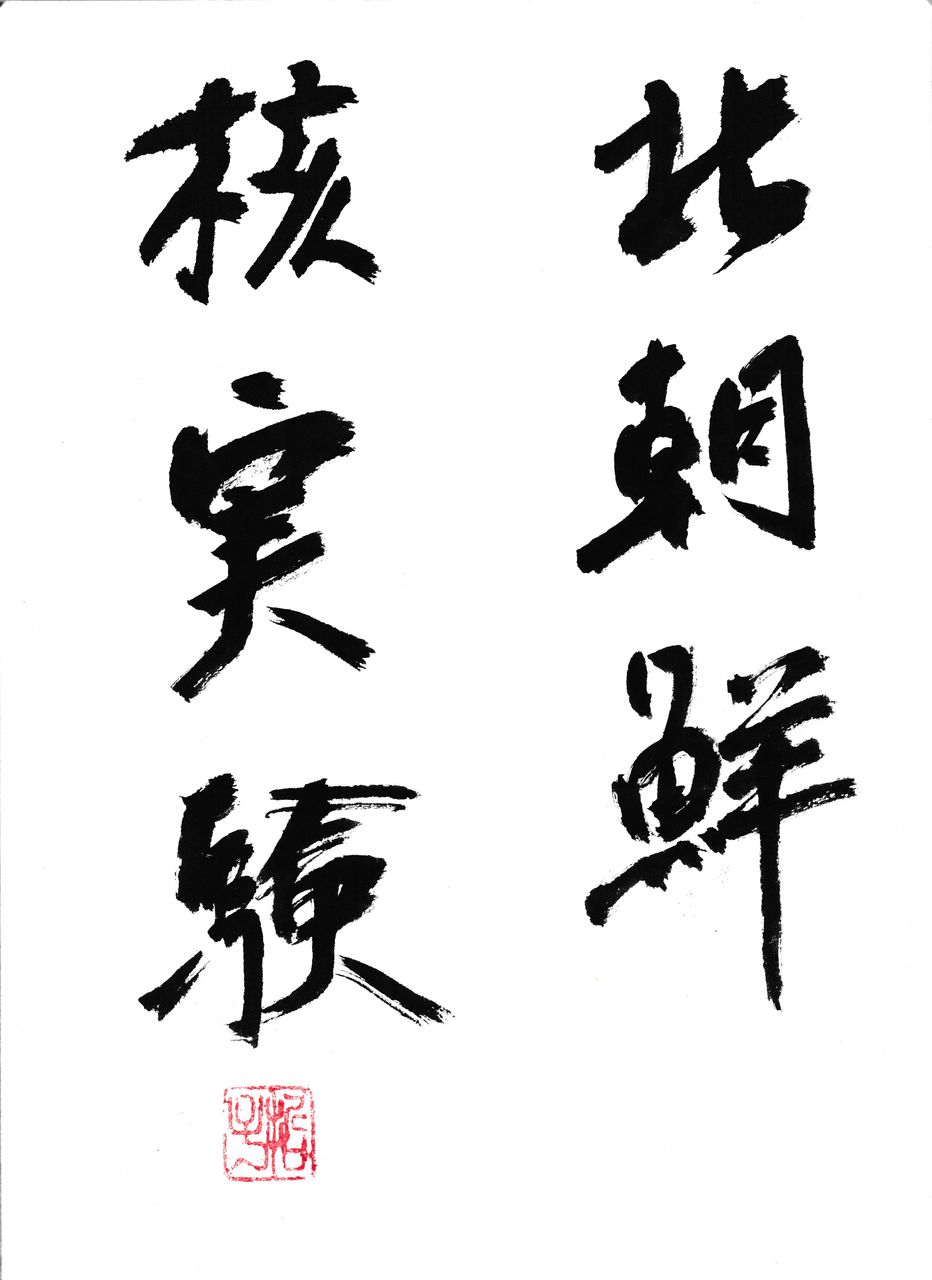 北朝鮮
核実験